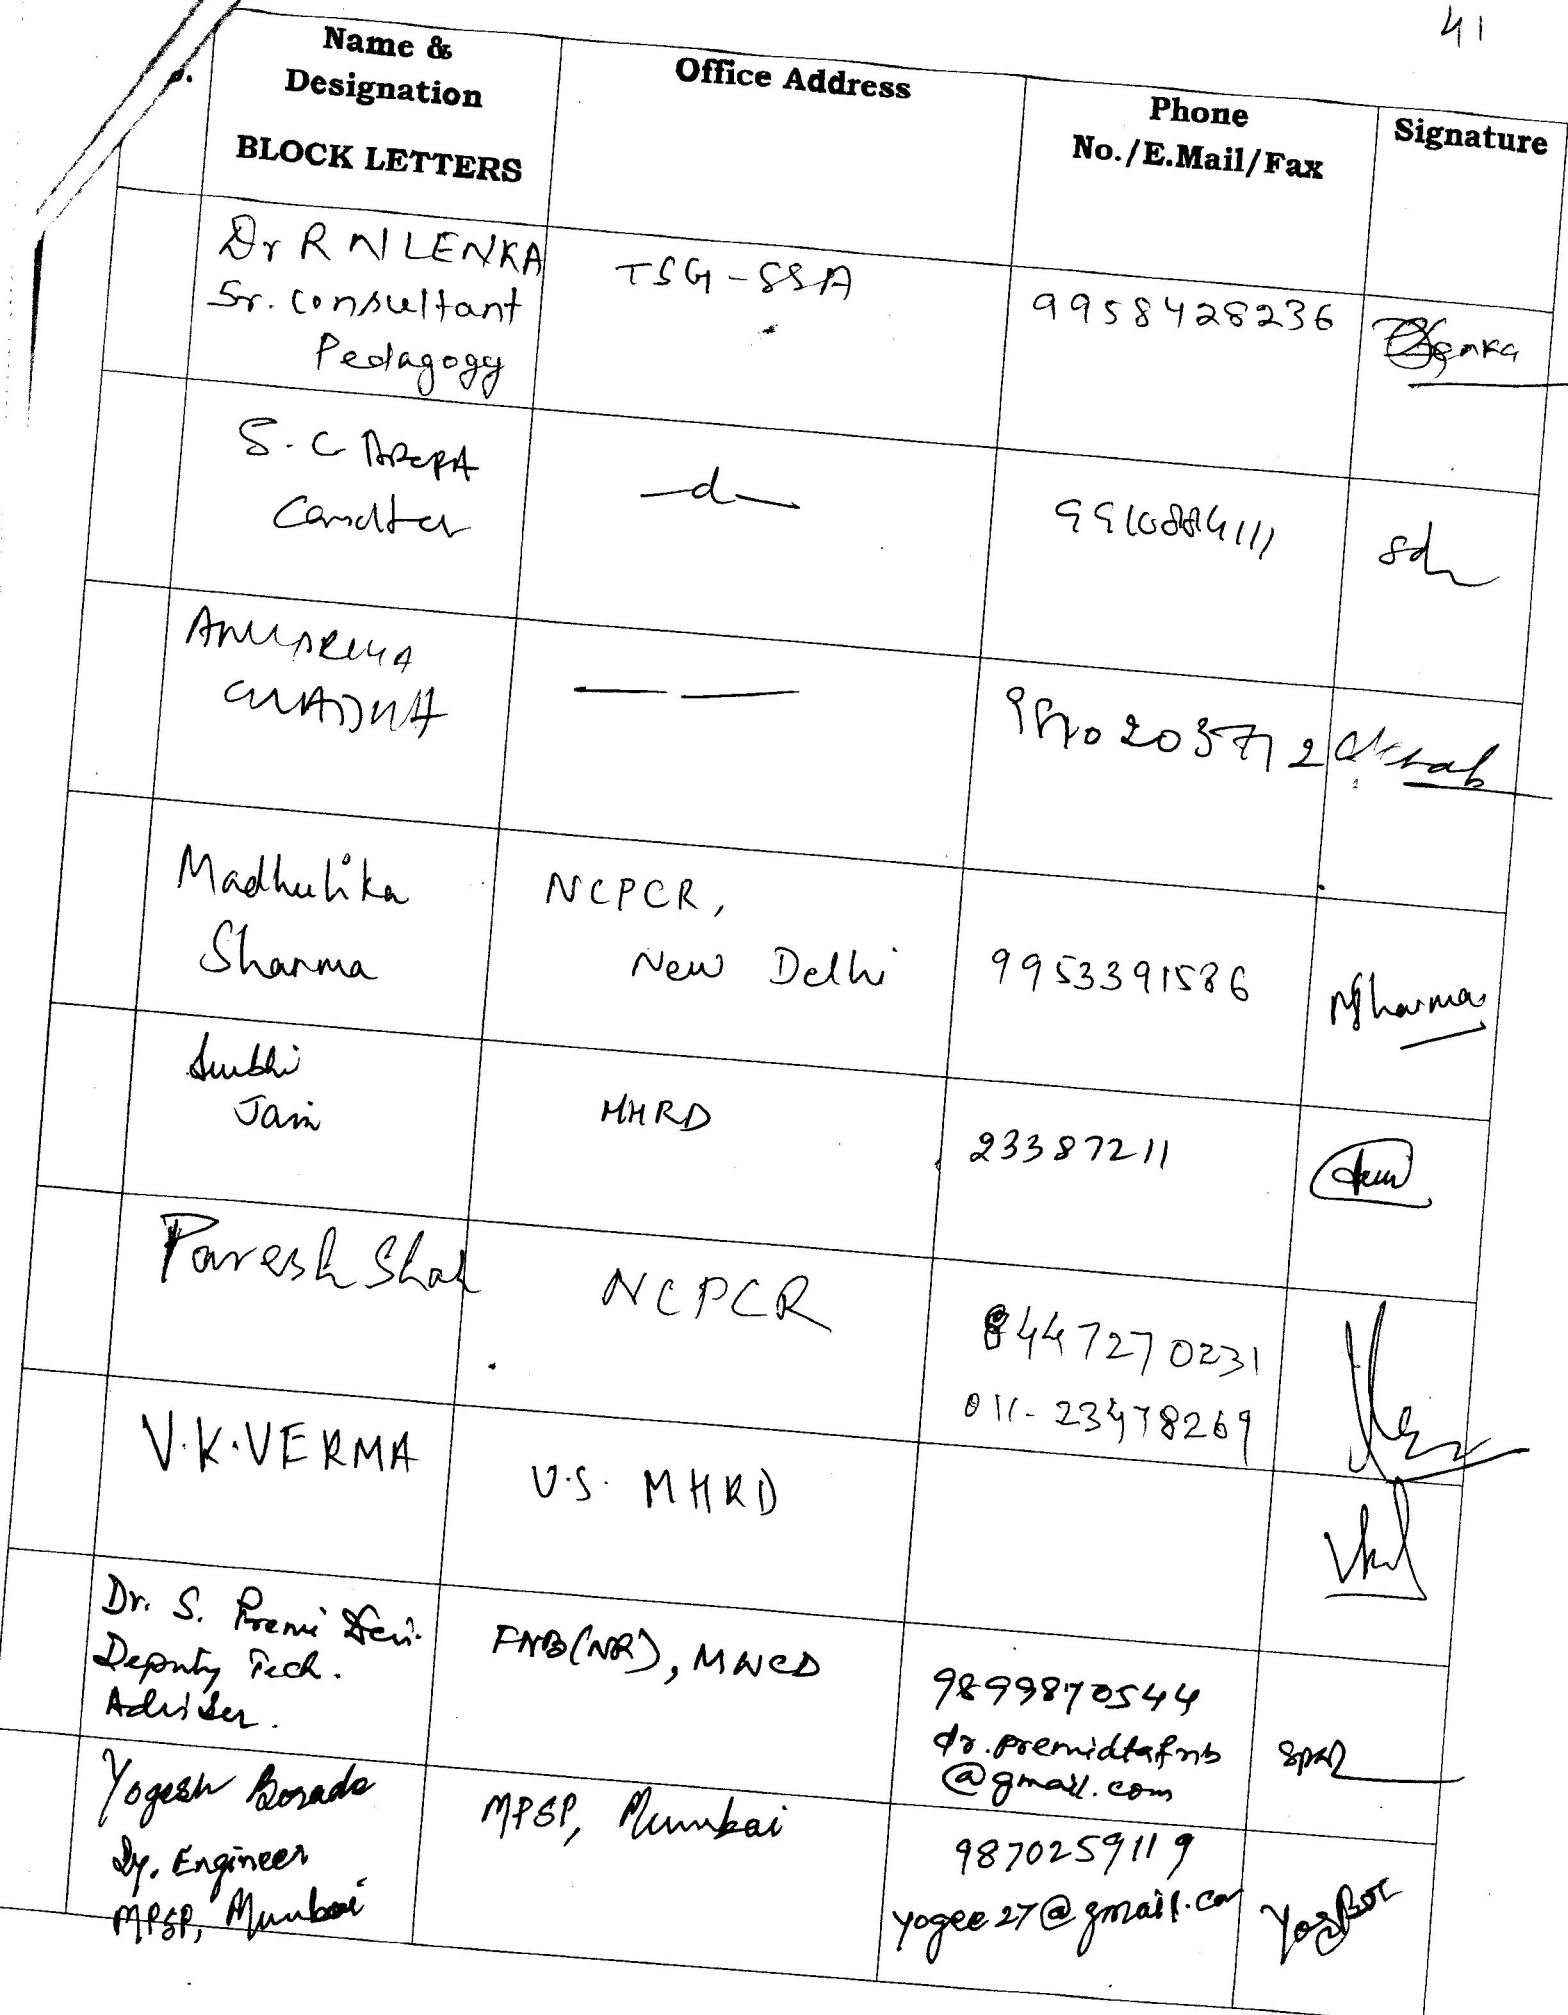 41
Name &
Designation
BLOCK LETTERS
Office Address
Phone
No./E.Mail/Fax
Signature
Dr R N LENKA
Sr. Consultant
Pedagogy
TSG-SSA
9958428236
S. C ARORA
—d—
sd
ANUPRIYA
CHADHA
— —
Madhulika
Sharma
NCPCR,
New Delhi
9953391586
MSharma
Surbhi
Jain
MHRD
23387211
Paresh Shah
NCPCR
8447270231
011-23478269
V.K.VERMA
U.S. MHRD
Dr. S. Premi Devi.
Deputy Tech.
Adviser.
FNB(NR), MWCD
9899870544
dr.premidtafnb
@gmail.com
Yogesh Borade
Dy. Engineer
MPSP, Mumbai
MPSP, Mumbai
9870259119
yogee27@gmail.com
YogBor